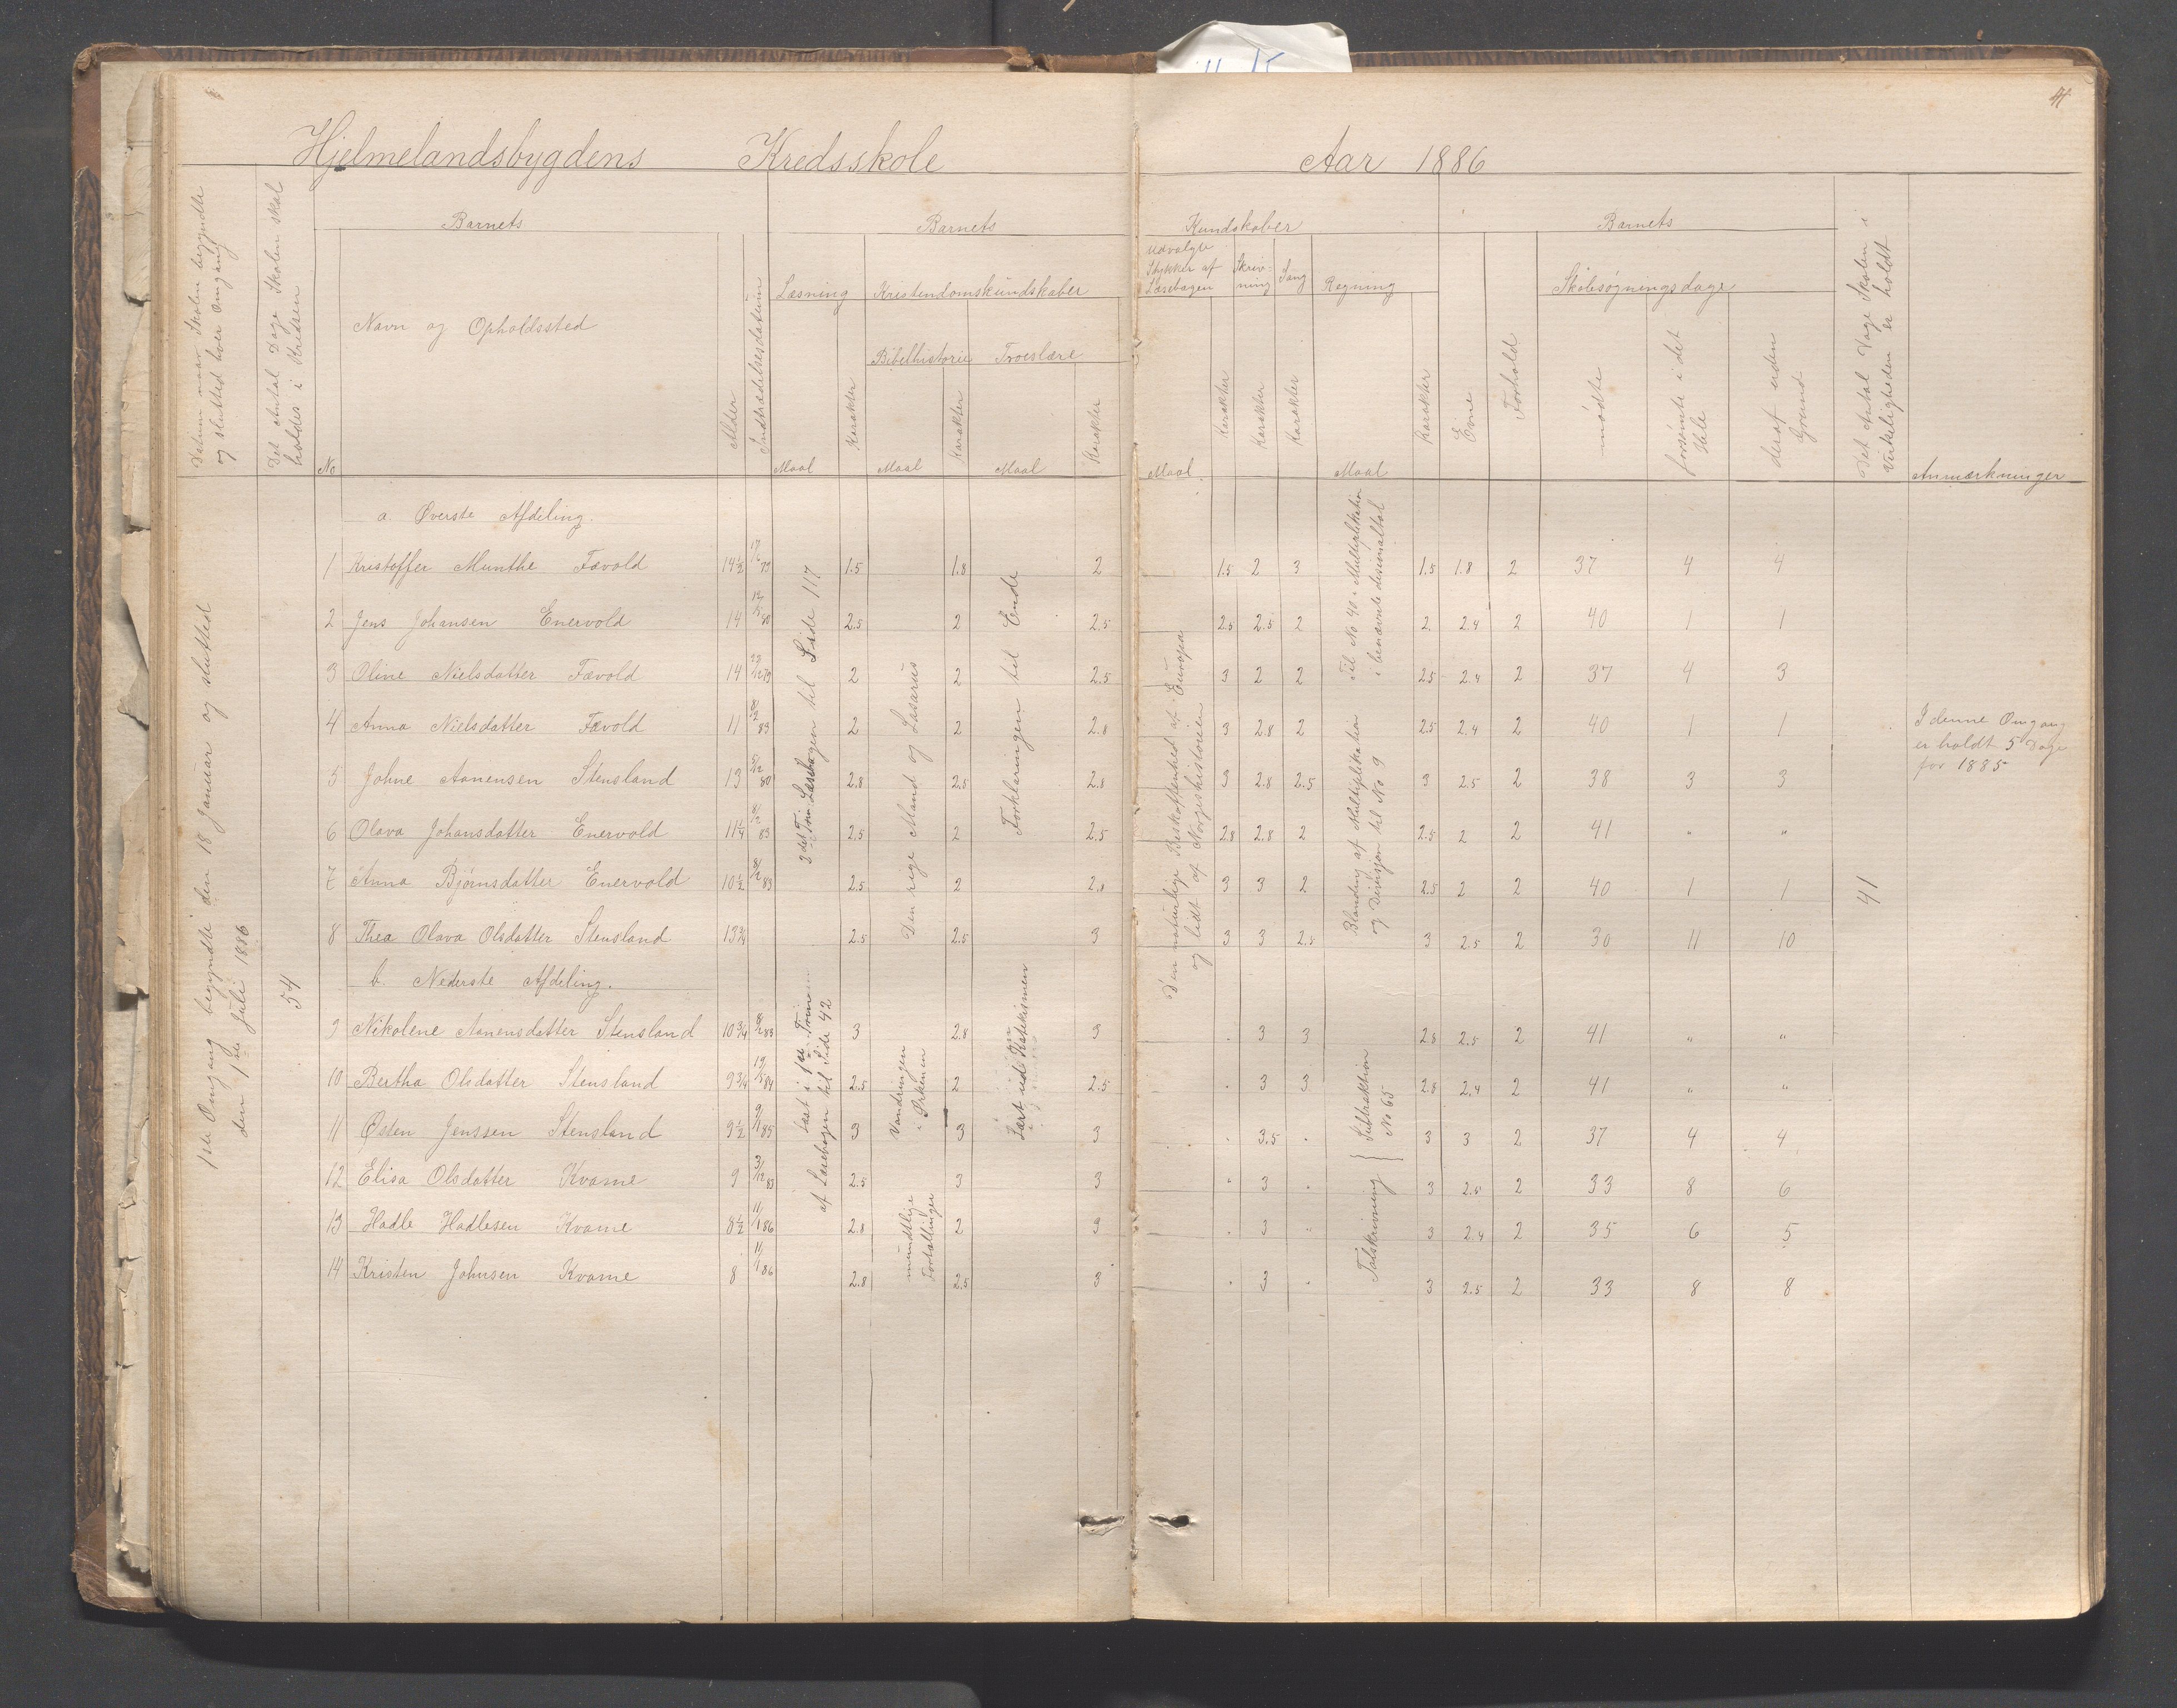 Hjelmelandsbygdens Kredsskole Aar 1886
Datum naar Skolen begyndte og slutted hver Omgang
Det Antal Dage Skolen skal holdes i Kredsen
No
Barnets
Navn og Opholdssted
Alder
Indtrædelsesdatum
Barnets Kundskaber
Læsning
Maal
Karakter
Kristendomskundskaber
Bibelhistorie
Maal
Karakter
Troeslære
Maal
Karakter
Udvalgte Stykker af Læsebogen
Maal
Karakter
Skrivning
Karakter
Sang
Karakter
Regning
Maal
Karakter
Barnets
Evne
Forhold
Skolesøgningsdage
mødte
forsømte i det Hele
deraf uden Grund
Det Antal Dage Skolen i Virkeligheden er holdt
Anmærkninger
1ste Omgang begyndte den 18 Januar og slutted
den 1ste Juli 1886
54
a. Øverste Afdeling.
1 Kristoffer Munthe Fævold 14½ 1.5 1.8 2 1.5 2 3 1.5 1.8 2 37 4 4
2 Jens Johansen Enervold 14 2.5 2 2.5 2.5 2.5 2 2 2.4 2 40 1 1
3 Oline Nielsdatter Fævold 14 2 2 2.5 3 2 2 2.5 2.4 2 37 4 3
4 Anna Nielsdatter Fævold 11 2 2 2.8 3 2.8 2 2.5 2.4 2 40 1 1
5 Johne Aanensen Stensland 13 2.8 2.5 2.8 3 2.8 2.5 3 2.5 2 38 3 3
6 Olava Johansdatter Enervold 11¼ 2.5 2 2.5 2.8 2.8 2 2.5 2 2 41 " "
7 Anna Bjørnsdatter Enervold 10½ 2.5 2 2.8 3 3 2 2.5 2 2 40 1 1
8 Thea Olava Olsdatter Stensland 13¾ 2.5 2.5 3 3 3 2.5 3 2.5 2 30 11 10
b. Nederste Afdeling.
9 Nikolene Aanensdatter Stensland 10¾ 3 2.8 3 . 3 3 2.8 2.5 2 41 " "
10 Bertha Olsdatter Stensland 9¾ 2.5 2 2.5 . 3 3 2.8 2.4 2 41 " "
11 Østen Jenssen Stensland 9½ 3 3 3 . 3.5 . 3 3 2 37 4 4
12 Elisa Olsdatter Kvame 9 2.5 3 3 " 3 . 3 2.5 2 33 8 6
13 Hadle Hadlesen Kvame 8½ 11/1 86 2.8 2 3 . 3 " 3 2.4 2 35 6 5
14 Kristen Johnsen Kvame 8 11/1 86 2.8 2.5 3 . 3 . 3 2.5 2 33 8 8
2det Trin Læsebogen til Side 117
Læst i 1ste Trin
af Læsebogen til Side 42
Den rige Mand og Lasarus
Vandringen i Ørkenen
mundtlige Fortællinger
Forklaringen til Ende
Lært ud Katekismen
Den naturlige Beskaffenhed af Europa
og lidt af Norgeshistorien
Til No 40 Multiplikation
i benævnte desimaltal
Blanding af Multiplikation
og Division til No 9
Subtraktion
No 65
Talskrivning
41
I denne Omgang
er holdt 5 Dage
for 1885